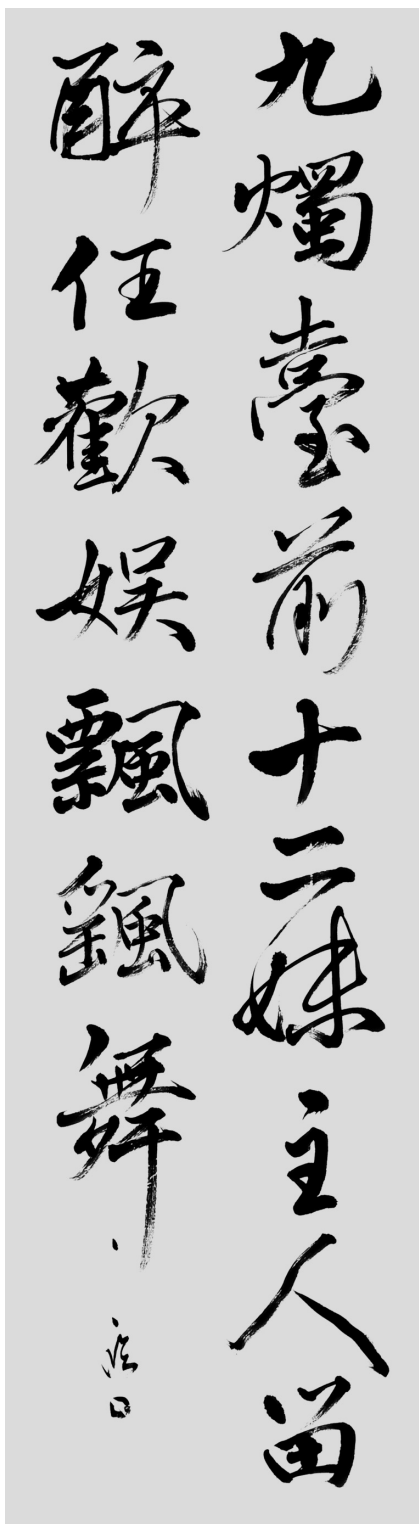 九燭臺前十二姝主人留
醉任歡娛飄颻舞